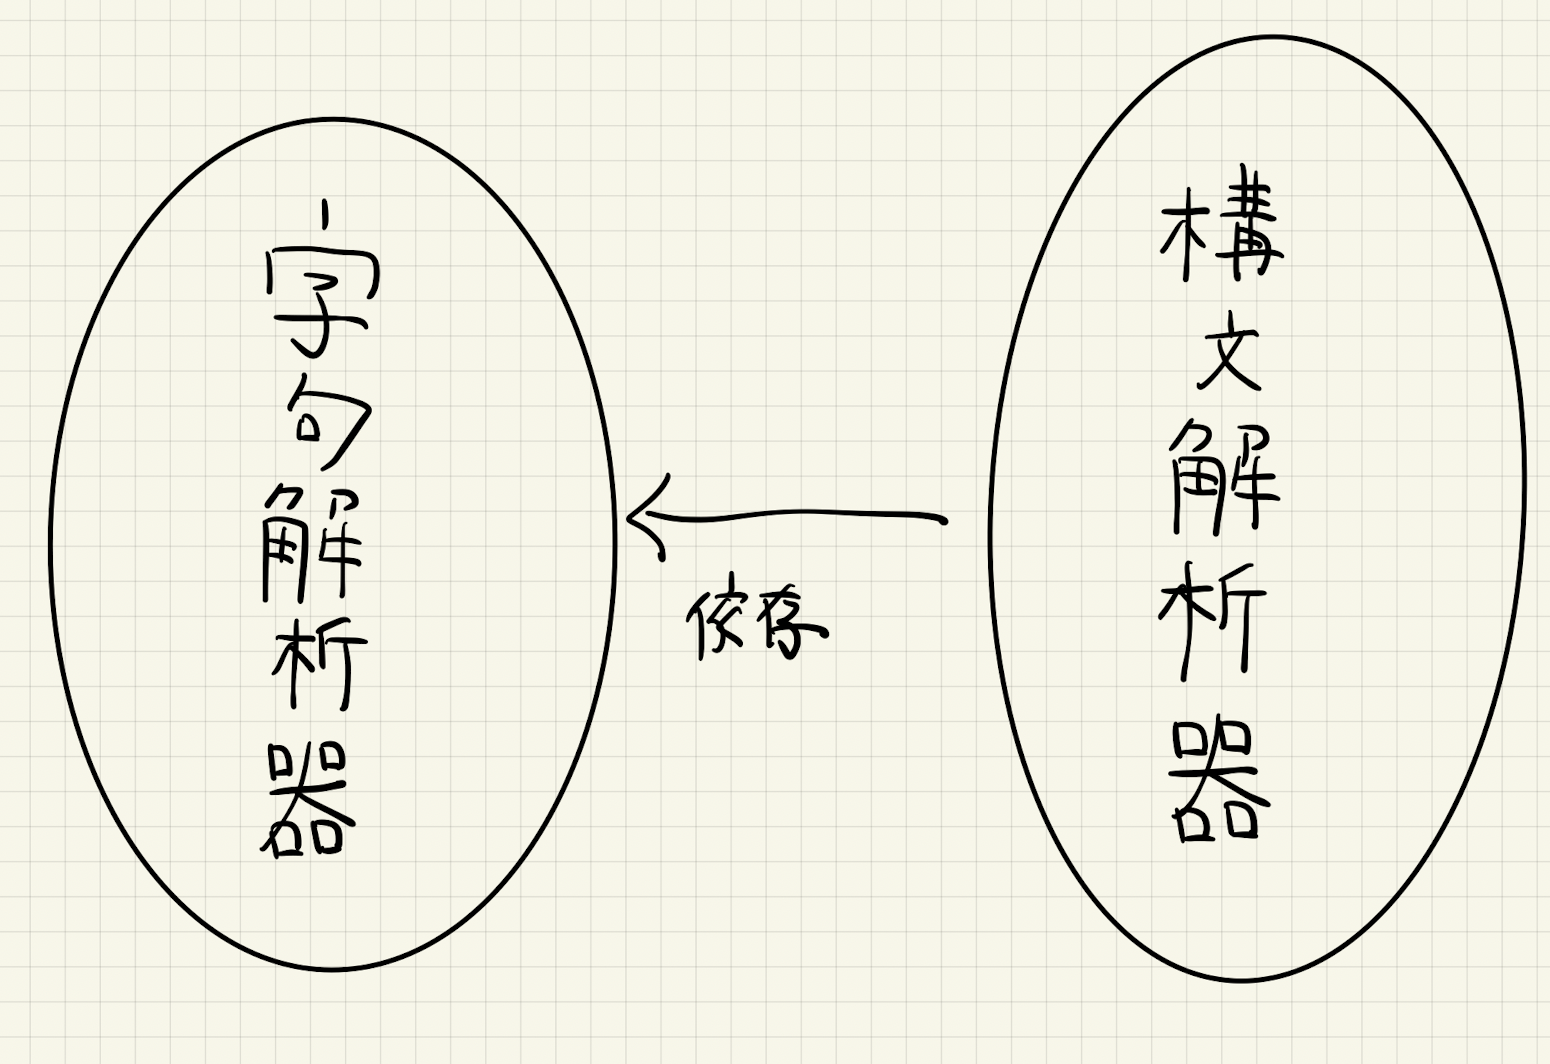 字句解析器
依存
構文解析器